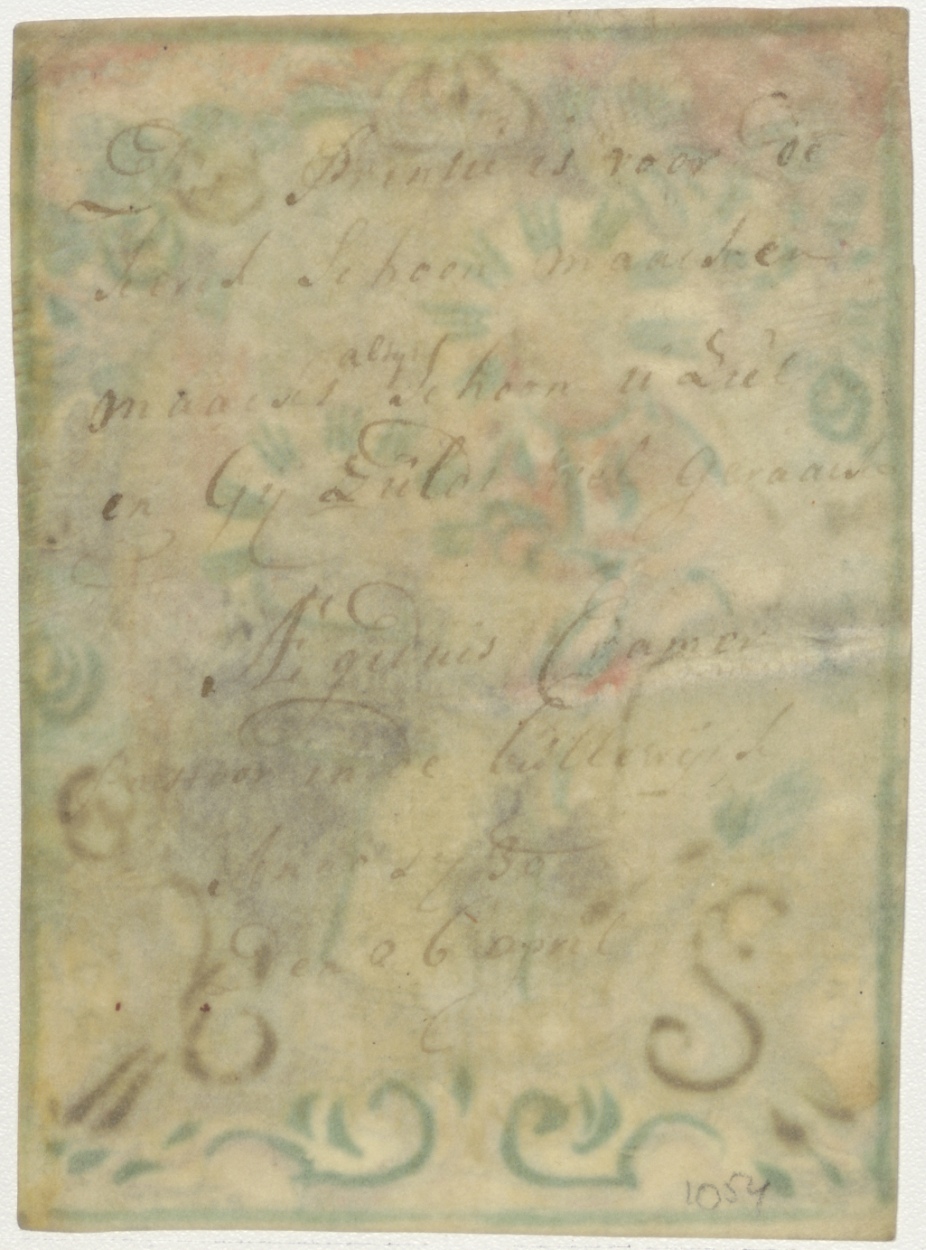 Dit Printie is voor de
kerck Schoon maacken
altyt
maackt Schoon u Ziel
en Gy Zuldt veel geraack
Ægidius Cramer
Pastoor in de
Anno 1730
Den 26 april
1054